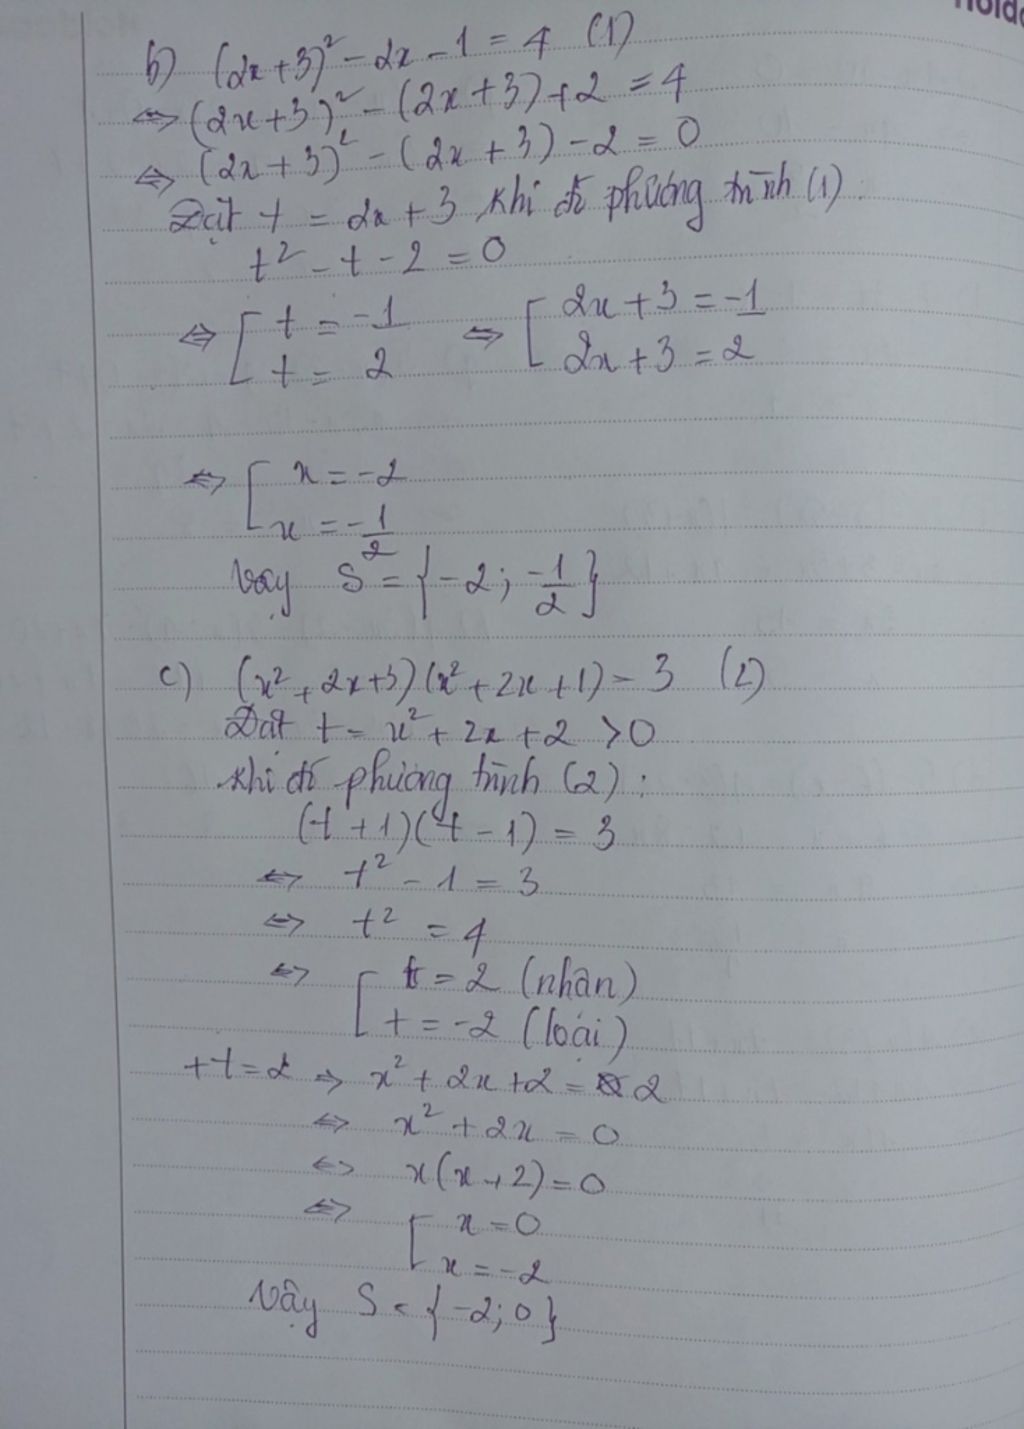 b) (2x+3)² - 2x - 1 = 4 (1)
⇔ (2x+3)² - (2x+3) + 2 = 4
⇔ (2x+3)² - (2x+3) - 2 = 0
Đặt t = 2x+3 khi đó phương trình (1):
t² - t - 2 = 0
⇔ [ t = -1 ⇔ [ 2x+3 = -1
t = 2 2x+3 = 2
⇔ [ x = -2
x = -1/2
Vậy S = {-2; -1/2}
c) (x²+2x+3)(x²+2x+1) = 3 (2)
Đặt t = x²+2x+2 >0
Khi đó phương trình (2):
(t+1)(t-1) = 3
⇔ t² - 1 = 3
⇔ t² = 4
⇔ [ t = 2 (nhận)
t = -2 (loại)
+ t = 2 ⇒ x²+2x+2 = 2
⇔ x² + 2x = 0
⇔ x(x+2) = 0
⇔ [ x = 0
x = -2
Vậy S = {-2; 0}